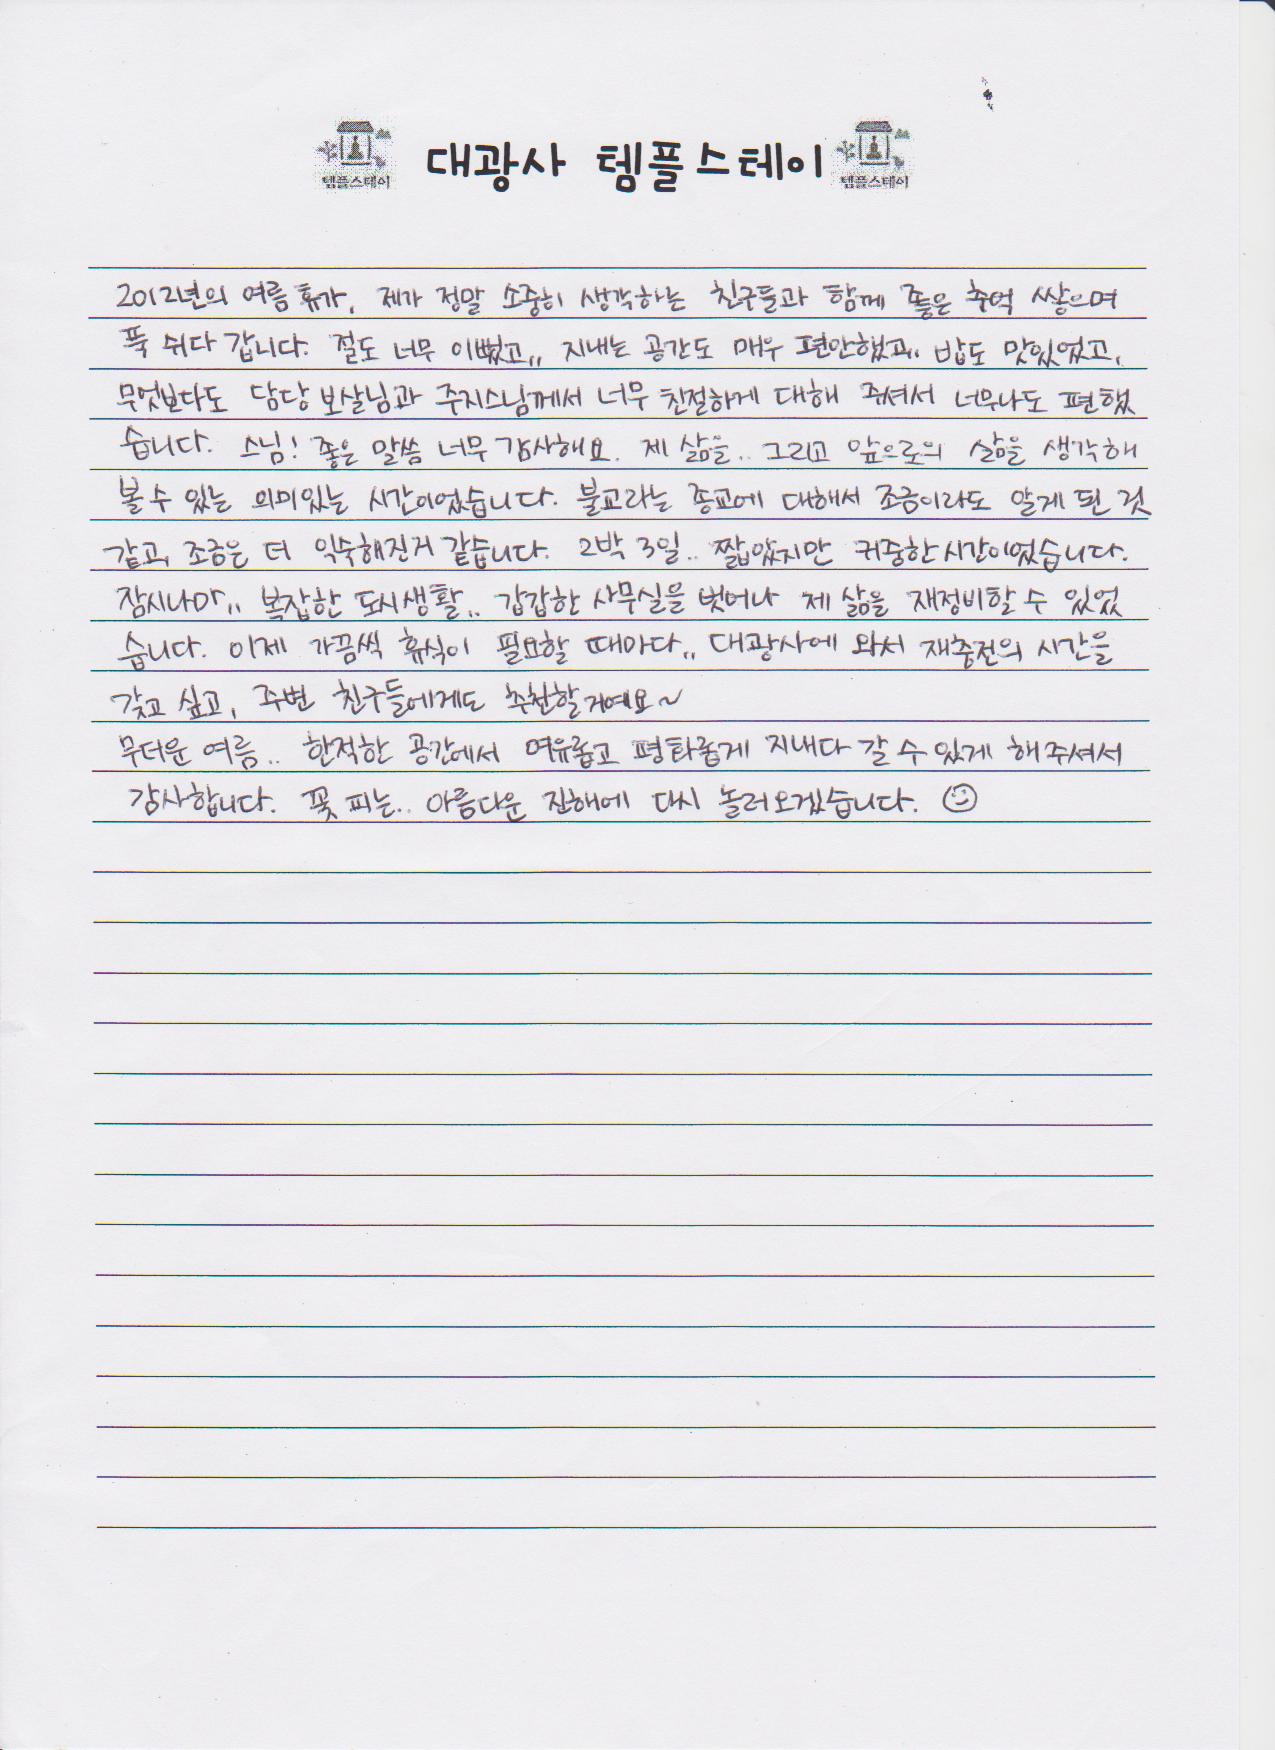 대광사 템플스테이
템플스테이 템플스테이
2012년의 여름 휴가, 제가 정말 소중히 생각하는 친구들과 함께 좋은 추억 쌓으며
푹 쉬다 갑니다. 절도 너무 이뻤고,, 지내는 공간도 매우 편안했고,, 밥도 맛있었고,
무엇보다도 담당 보살님과 주지스님께서 너무 친절하게 대해 주셔서 너무나도 편했
습니다. 스님! 좋은 말씀 너무 감사해요. 제 삶을.. 그리고 앞으로의 삶을 생각해
볼 수 있는 의미있는 시간이었습니다. 불교라는 종교에 대해서 조금이라도 알게 된 것
같고, 조금은 더 익숙해진거 같습니다. 2박 3일.. 짧았지만 귀중한 시간이었습니다.
잠시나마,, 복잡한 도시생활.. 갑갑한 사무실을 벗어나 제 삶을 재정비할 수 있었
습니다. 이제 가끔씩 휴식이 필요할 때마다,, 대광사에 와서 재충전의 시간을
갖고 싶고, 주변 친구들에게도 추천할거예요~
무더운 여름.. 한적한 공간에서 여유롭고 평화롭게 지내다 갈 수 있게 해주셔서
감사합니다. 꽃 피는.. 아름다운 진해에 다시 놀러오겠습니다. ☺